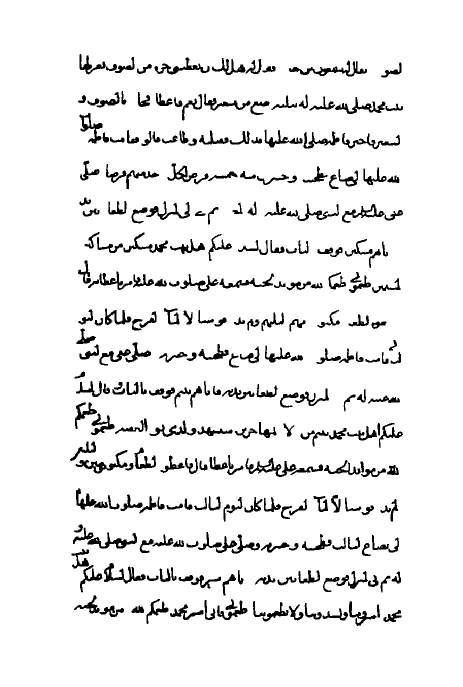 لصوف يقال له شمعون فقال له هل لك ان تعطيني جزة من الصوف تغزلها
بنت محمد صلى الله عليه وآله بثلثة اصوع من شعير فقال نعم فاعطاه فجاء بالصوف و
الشعير فاخبر فاطمة صلى الله عليها بذلك فقبلت واطاعت قالوا فقامت فاطمة صلوات
الله عليها الى صاع فطحنته واختبزت منه خمسة اقراص لكل واحد منهم قرصا وصلى
على مع النبي صلى الله عليه وآله ثم اتى المنزل فوضع الطعام بين يديه
اتاهم مسكين فوقف بالباب فقال السلام عليكم اهل بيت محمد مسكين من مساكين
المسلمين اطعموني اطعمكم الله من موائد الجنة فسمعه على صلوات الله عليه فامر باعطائه قال
فاعطوه الطعام ومكثوا يومهم وليلتهم لم يذوقوا شيئا الا الماء القراح فلما كان اليوم
الثاني قامت فاطمة صلوات الله عليها الى صاع فطحنته واختبزته وصلى على مع النبي صلى
الله عليه وآله ثم اتى المنزل فوضع الطعام بين يديه فاتاهم يتيم فوقف بالباب وقال السلام
عليكم اهل بيت محمد يتيم من اولاد المهاجرين استشهد والدي يوم العقبة اطعموني اطعمكم
الله من موائد الجنة فسمعه على فامر باعطائه قال فاعطوه الطعام ومكثوا يومين و
لم يذوقوا شيئا الا الماء القراح فلما كان اليوم الثالث قامت فاطمة صلوات الله عليها
الى الصاع الثالث فطحنته واختبزته وصلى على صلوات الله عليه مع النبي صلى الله عليه و
آله ثم اتى المنزل فوضع الطعام بين يديه اتاهم اسير فوقف بالباب فقال السلام عليكم اهل بيت
محمد تأسروننا وتشدوننا ولا تطعموننا اطعموني فاني اسير محمد اطعمكم الله من موائد الجنة